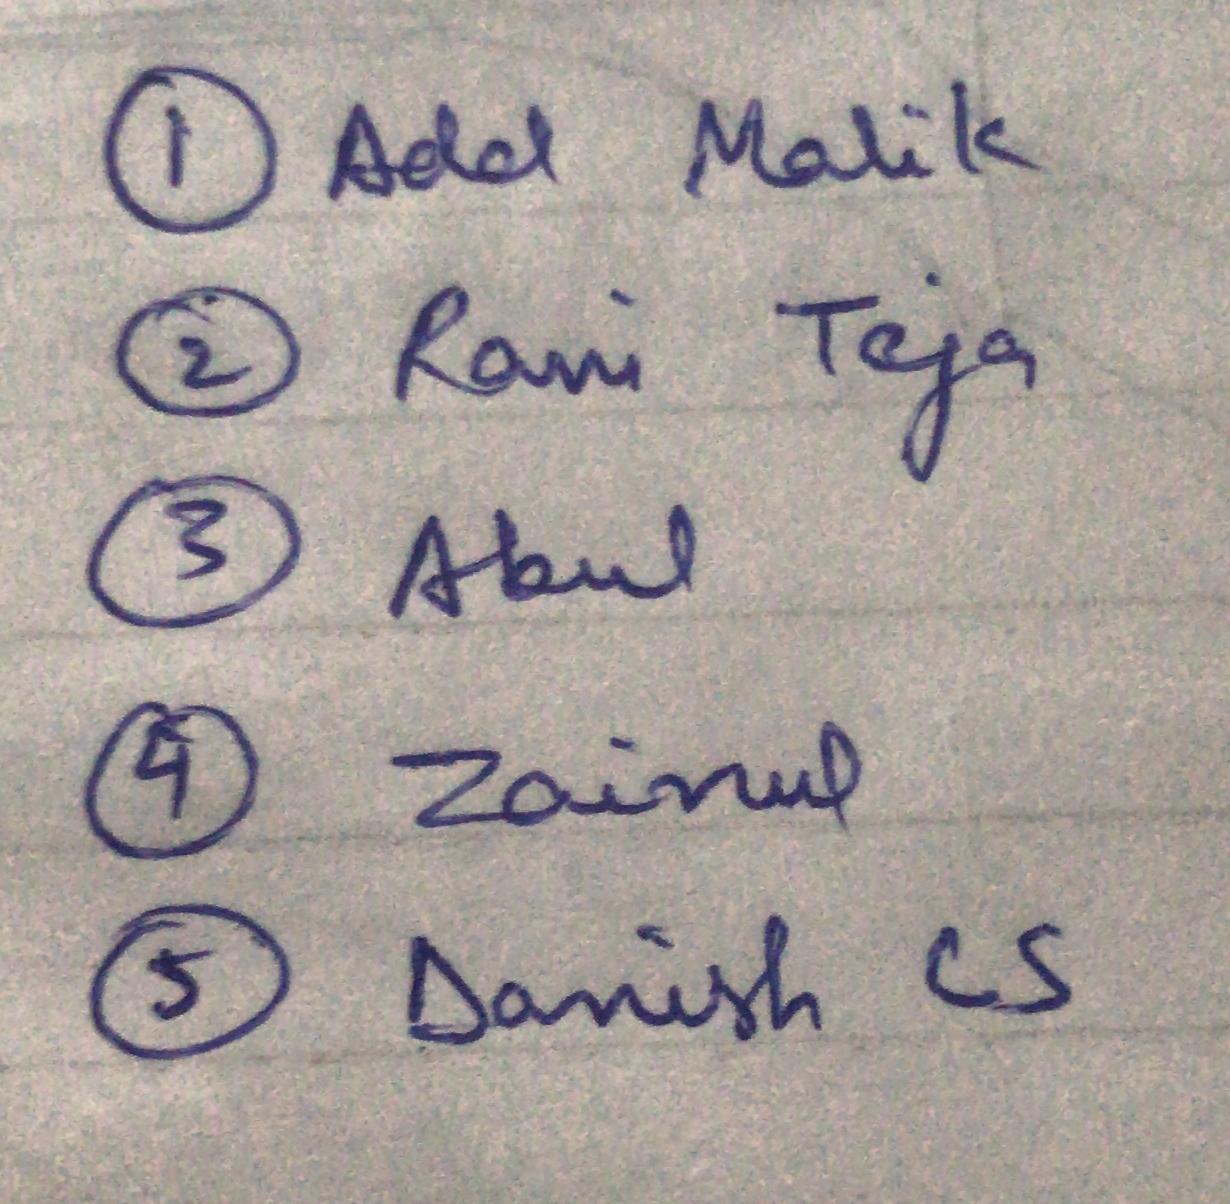 1 Add Malik
2 Ravi Teja
3 Abul
4 Zainul
5 Danish CS